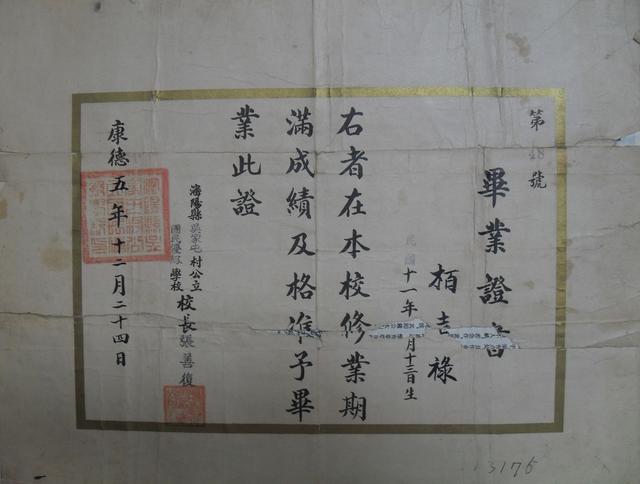 第48號
畢業證書
栢吉祿
民國十一年 月十三日生
右者在本校修業期
滿成績及格准予畢
業此證
瀋陽縣吳家屯村公立
國民優級學校
校長張善復
康德五年十二月二十四日
13176